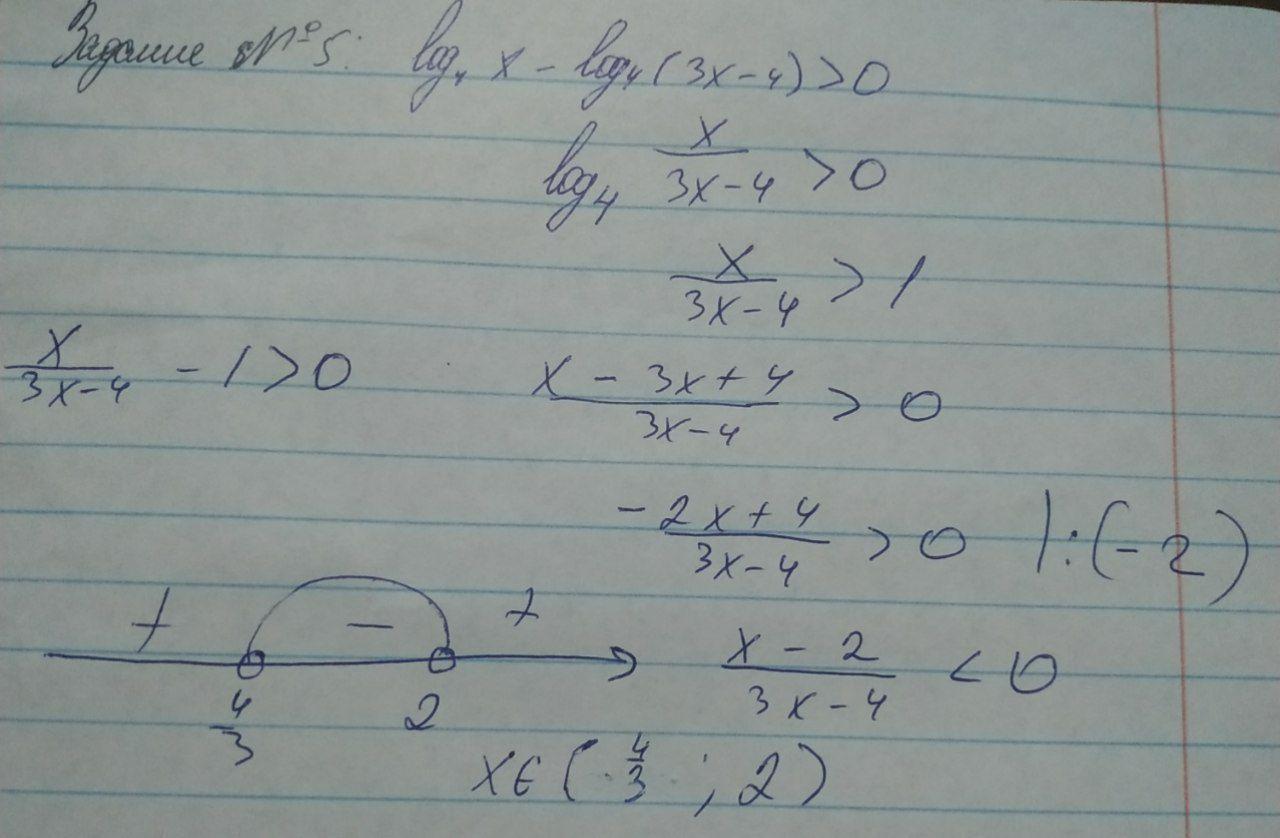 Задание №5: log₄ x - log₄(3x-4)>0
log₄ x/(3x-4) >0
x/(3x-4) > 1
x/(3x-4) - 1>0    (x - 3x+4)/(3x-4) > 0
(-2x+4)/(3x-4) > 0  |:(-2)
+ - +
(x - 2)/(3x-4) < 0
4/3  2
x∈(4/3 ; 2)